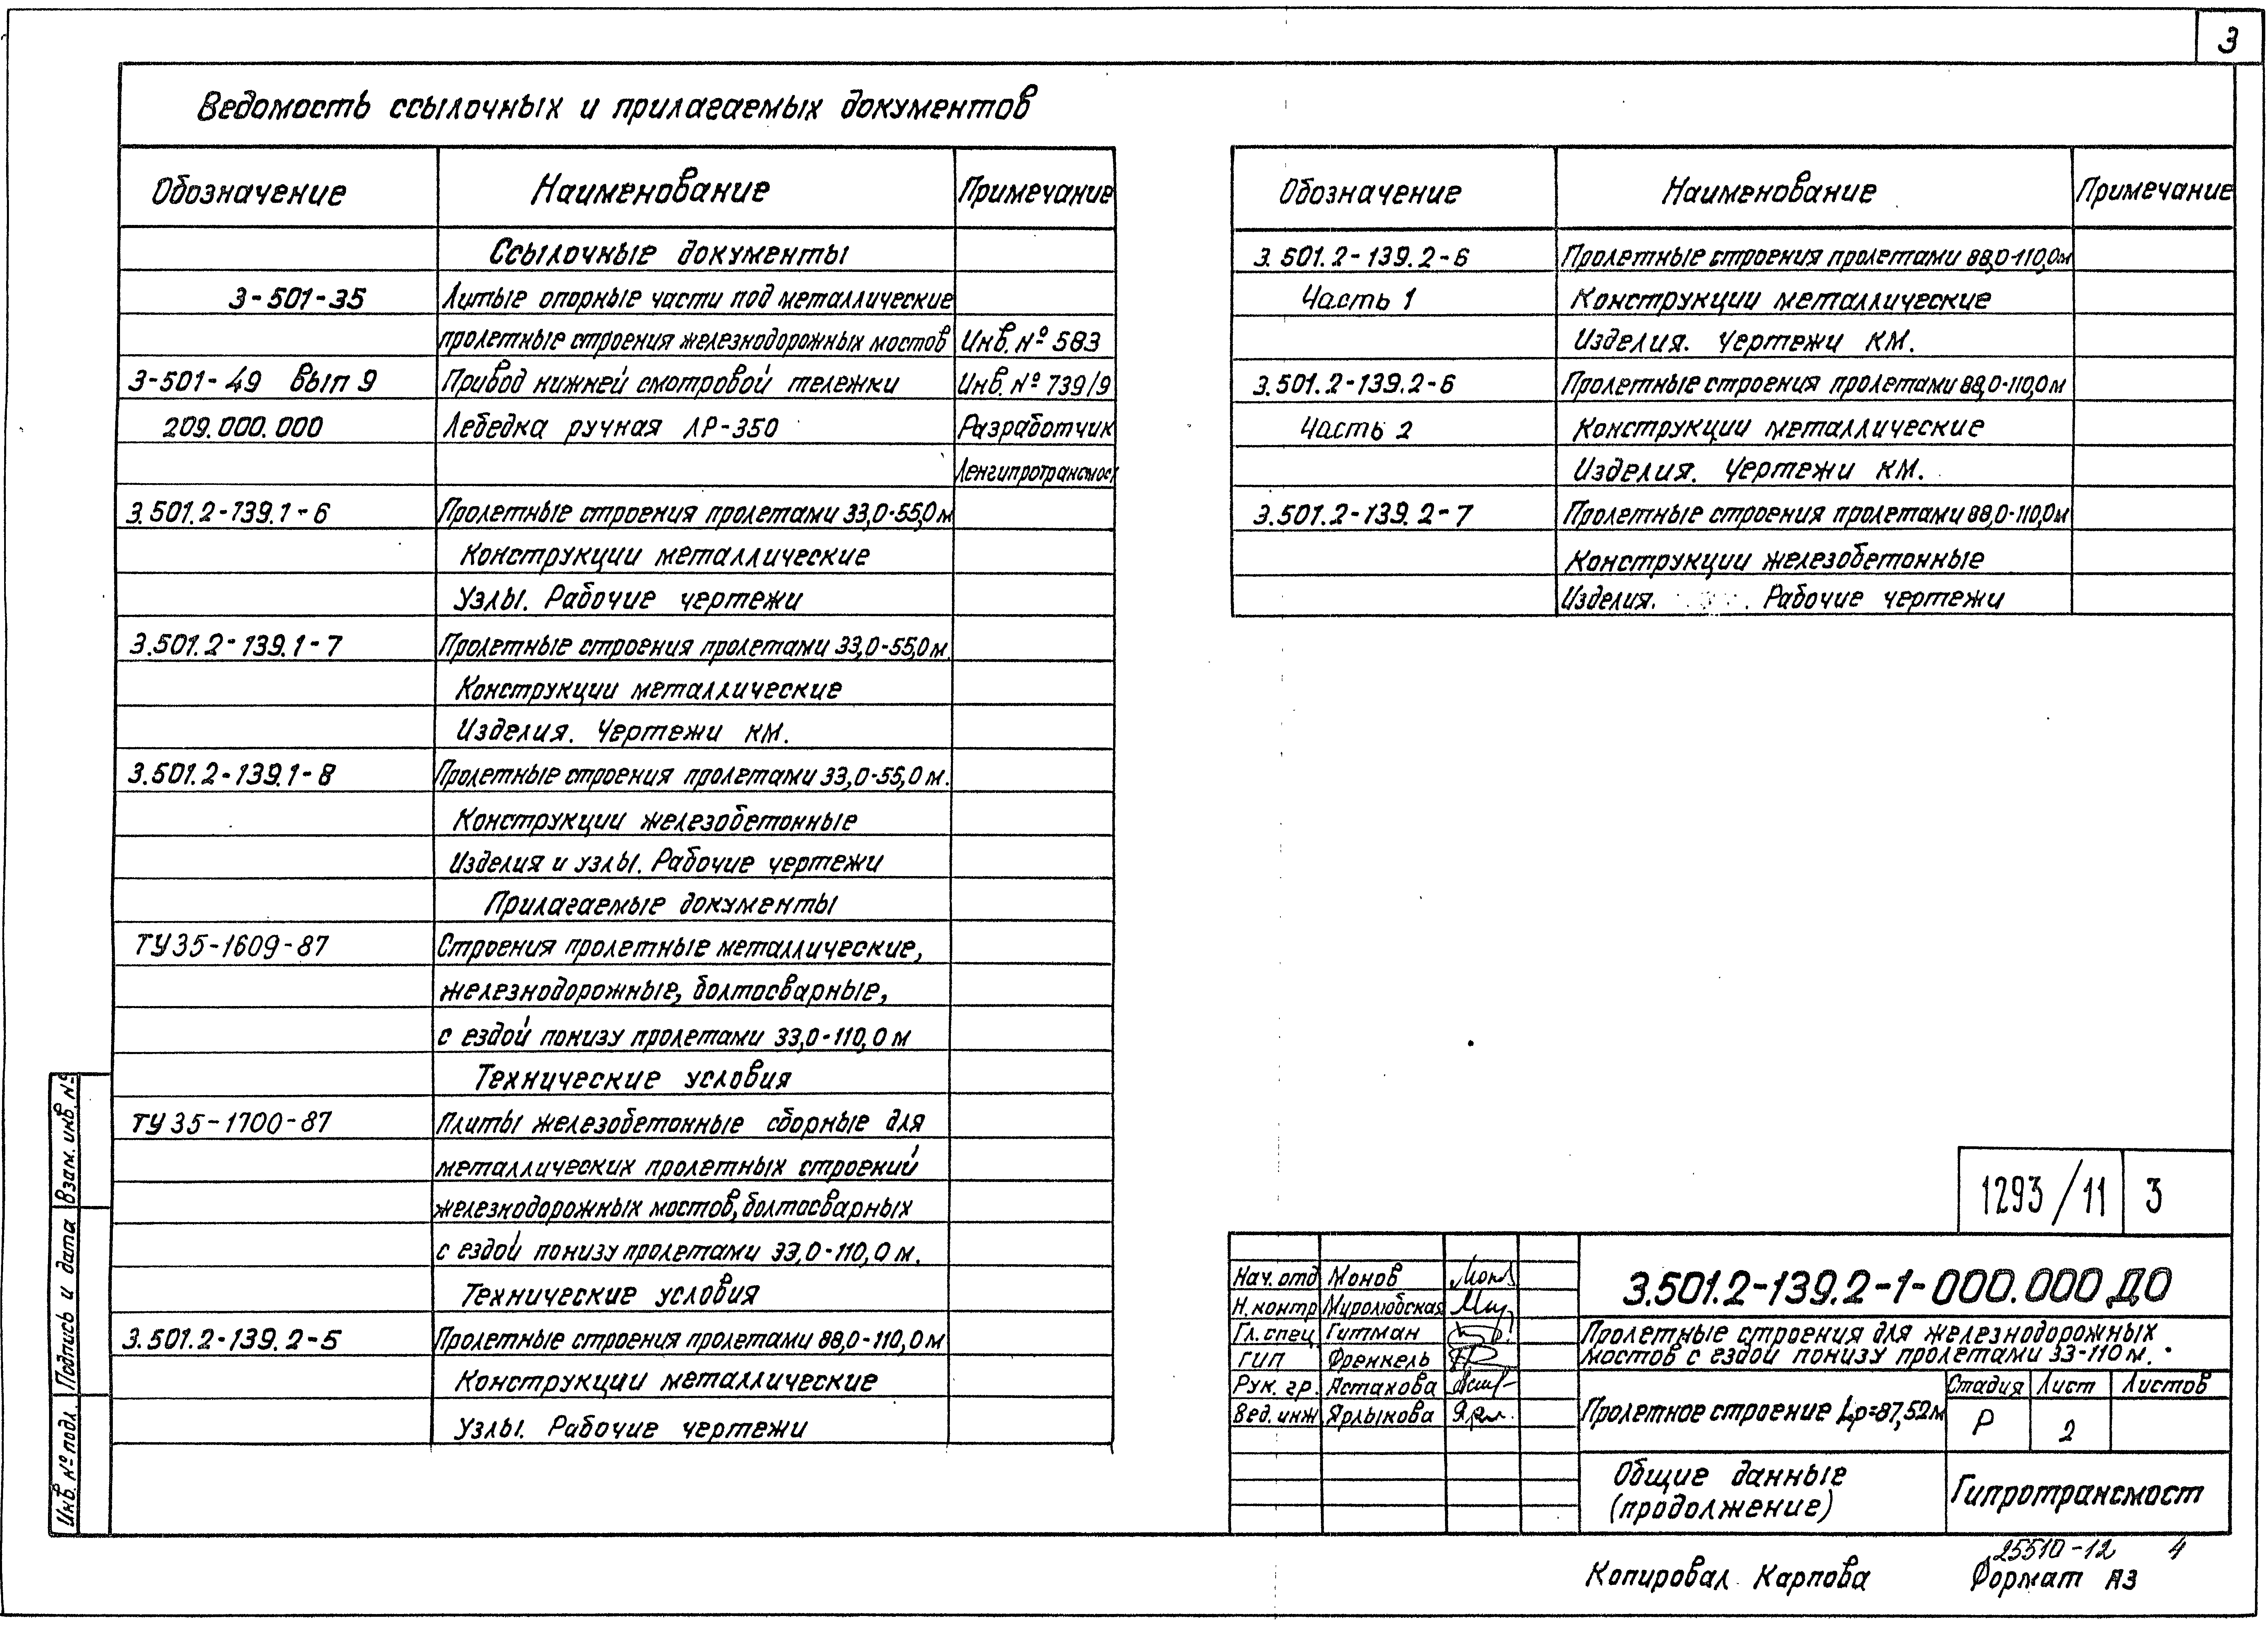 3
Ведомость ссылочных и прилагаемых документов
Обозначение Наименование Примечание
Ссылочные документы
3-501-35 Литые опорные части под металлические
пролетные строения железнодорожных мостов Инв. № 583
3-501-49 Вып 9 Привод нижней смотровой тележки Инв. № 739/9
209.000.000 Лебедка ручная ЛР-350 Разработчик
Ленгипротрансмост
3.501.2-139.1-6 Пролетные строения пролетами 33,0-55,0 м
Конструкции металлические
Узлы. Рабочие чертежи
3.501.2-139.1-7 Пролетные строения пролетами 33,0-55,0 м.
Конструкции металлические
Изделия. Чертежи КМ.
3.501.2-139.1-8 Пролетные строения пролетами 33,0-55,0 м.
Конструкции железобетонные
Изделия и узлы. Рабочие чертежи
Прилагаемые документы
ТУ 35-1609-87 Строения пролетные металлические,
железнодорожные, болтосварные,
с ездой понизу пролетами 33,0-110,0 м
Технические условия
ТУ 35-1700-87 Плиты железобетонные сборные для
металлических пролетных строений
железнодорожных мостов, болтосварных
с ездой понизу пролетами 33,0-110,0 м.
Технические условия
3.501.2-139.2-5 Пролетные строения пролетами 88,0-110,0 м
Конструкции металлические
Узлы. Рабочие чертежи
Обозначение Наименование Примечание
3.501.2-139.2-6 Пролетные строения пролетами 88,0-110,0 м
Часть 1 Конструкции металлические
Изделия. Чертежи КМ.
3.501.2-139.2-6 Пролетные строения пролетами 88,0-110,0 м
Часть 2 Конструкции металлические
Изделия. Чертежи КМ.
3.501.2-139.2-7 Пролетные строения пролетами 88,0-110,0 м
Конструкции железобетонные
Изделия. Рабочие чертежи
1293/11 3
3.501.2-139.2-1-000.000 ДО
Нач. отд Монов
Н. контр Миролюбская
Гл. спец Гитман
ГИП Френкель
Рук. гр. Астахова
Вед. инж Ярлыкова
Пролетные строения для железнодорожных
мостов с ездой понизу пролетами 33-110 м.
Пролетное строение Lр=87,52 м
Стадия Лист Листов
Р 2
Общие данные
(продолжение)
Гипротрансмост
Взам. инв. №
Подпись и дата
Инв. № подл.
25510-12 4
Копировал Карпова Формат А3